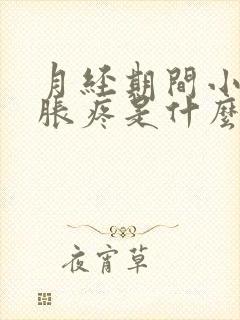 月経期間小
脹疼是什麼
夜宵草